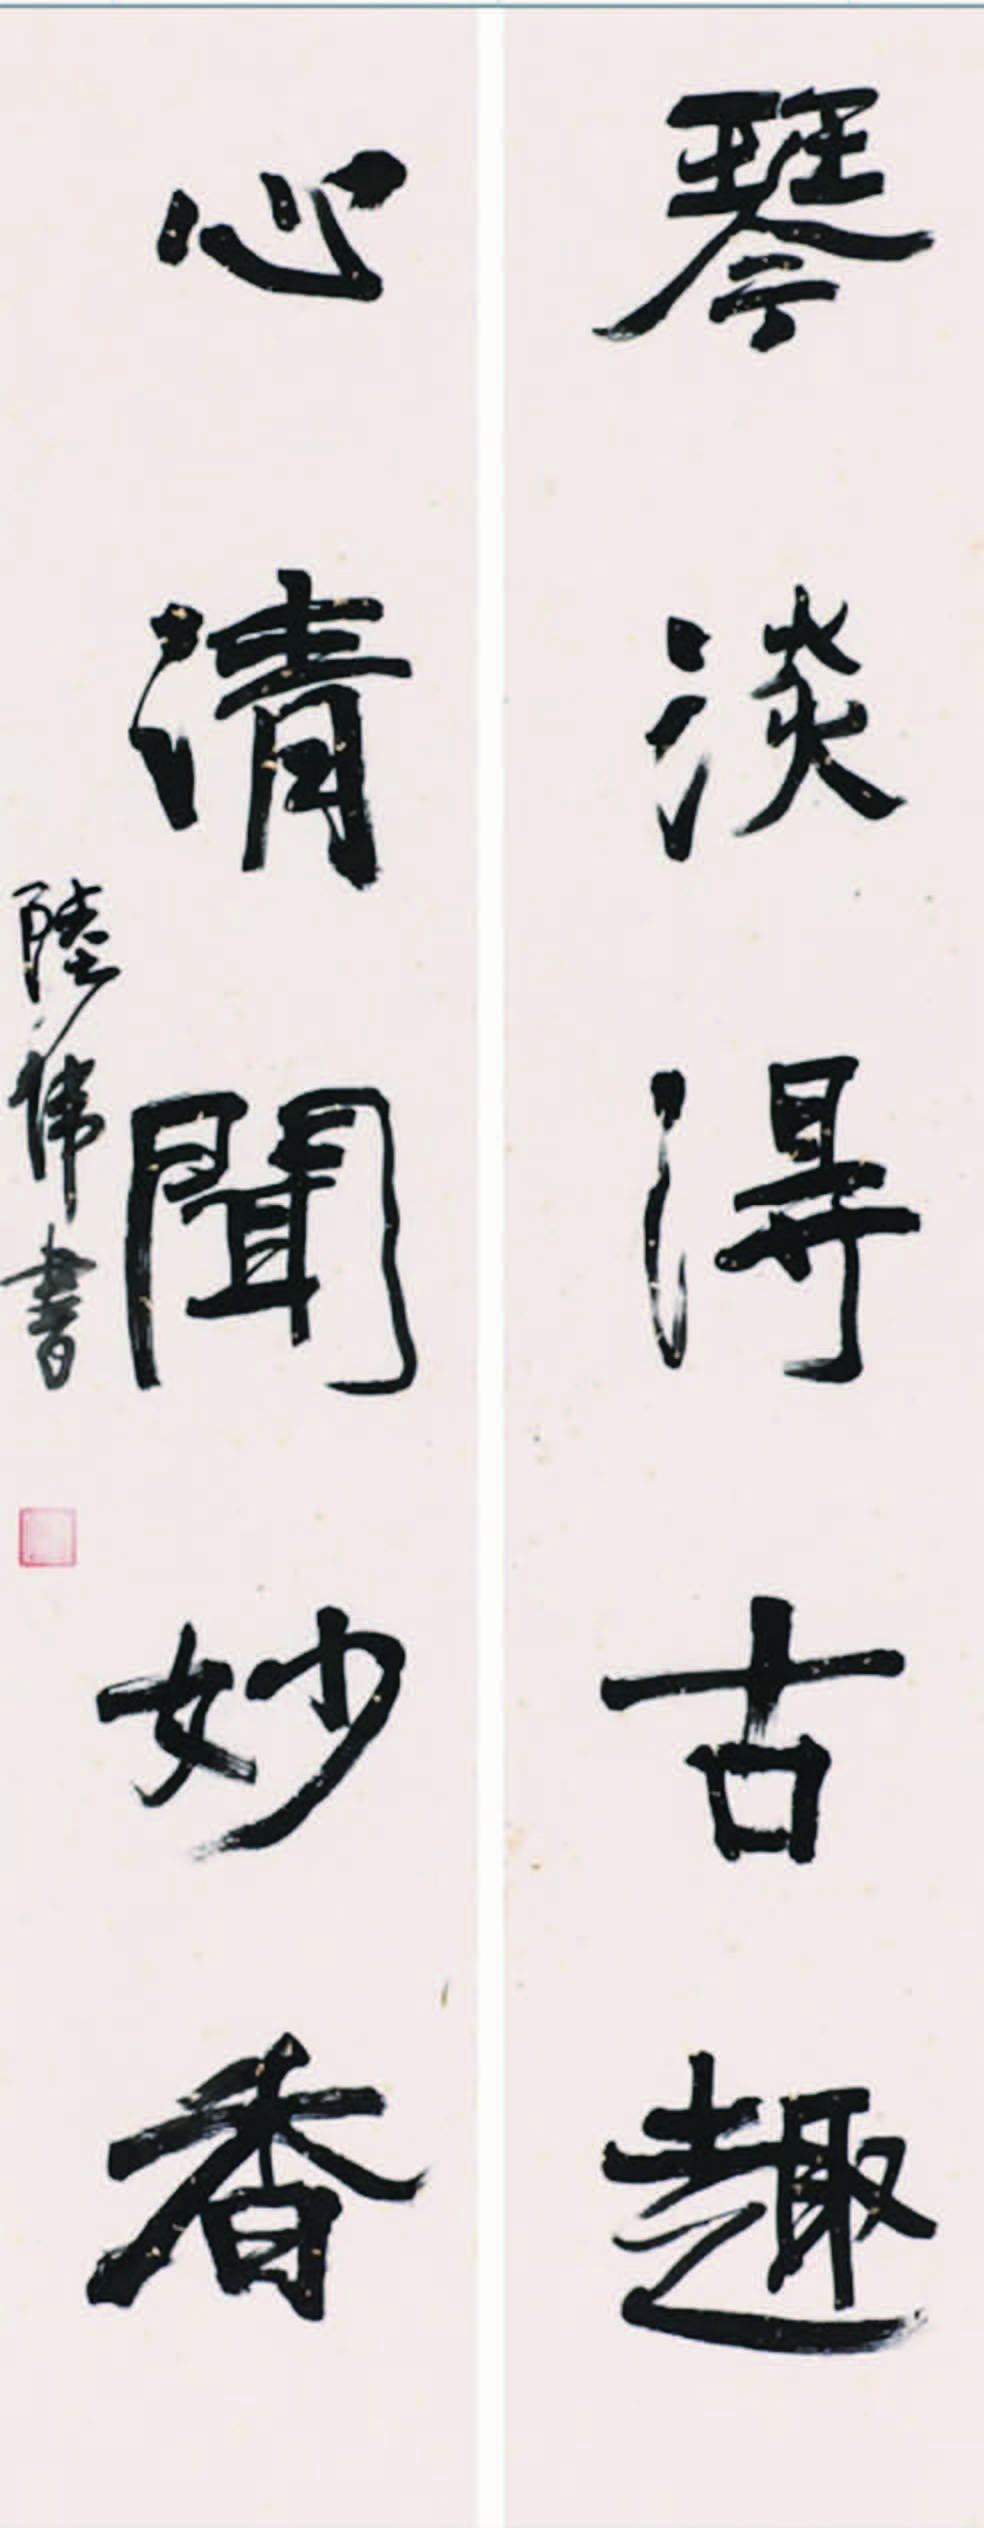 琴淡得古趣
心清聞妙香
陸偉書